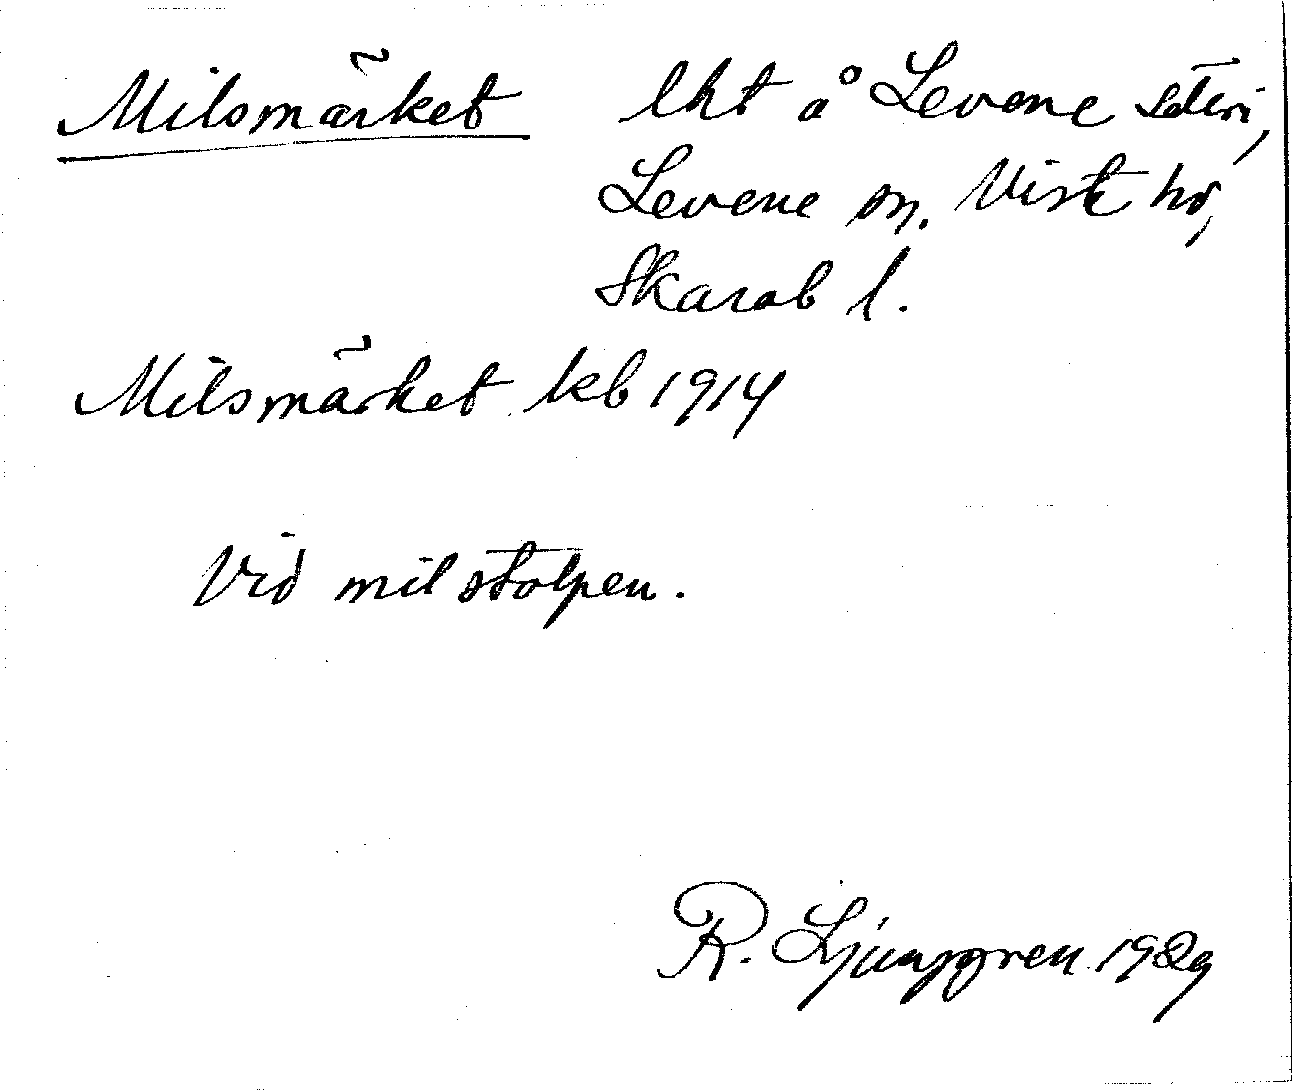 Milsmärket lht å Levene säteri,
Levene sn. Viste hd,
Skarab l.
Milsmärket kb 1914
Vid milstolpen.
R. Ljunggren 1929